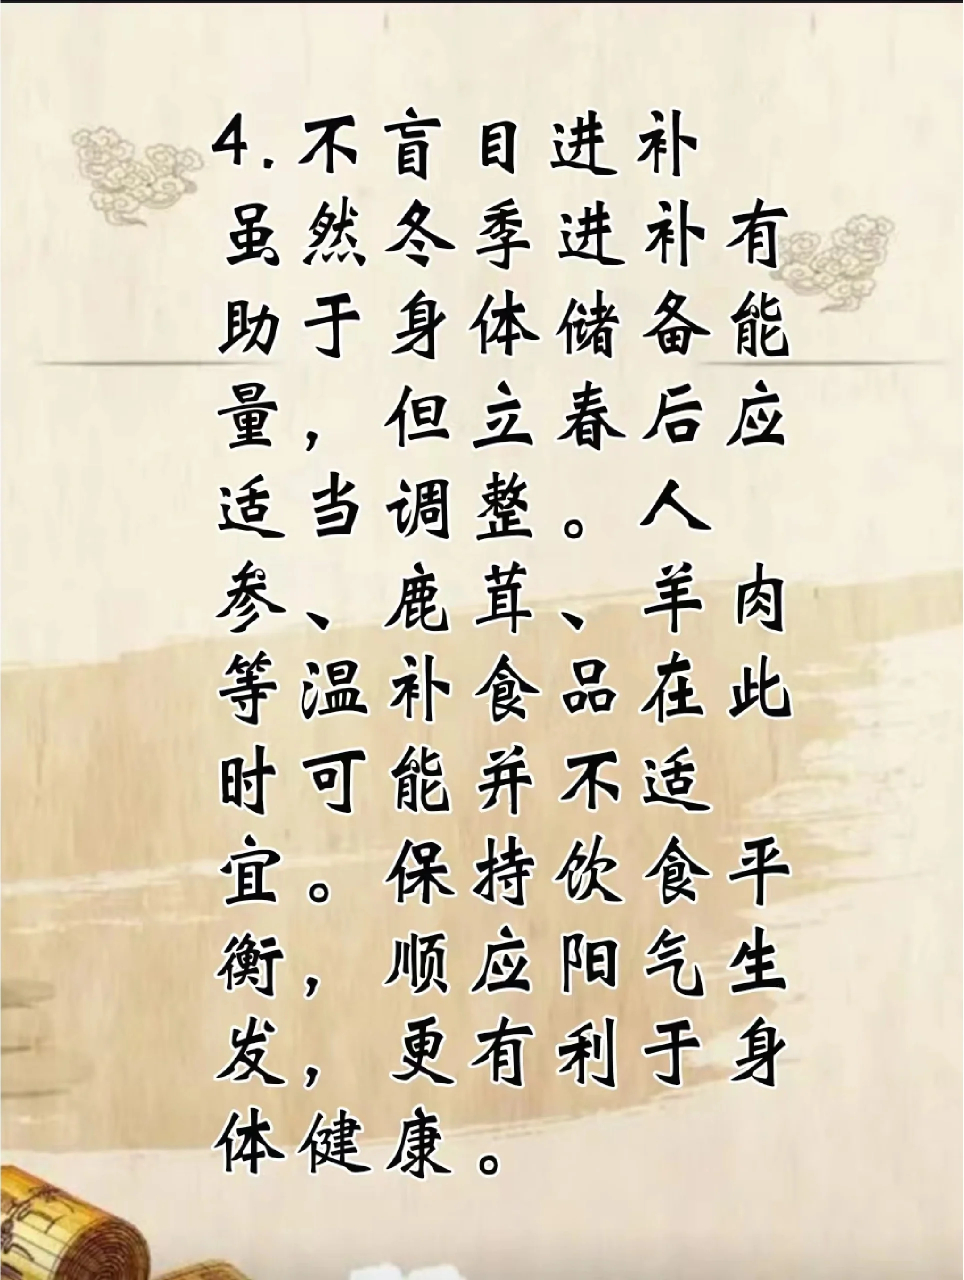 4.不盲目进补
虽然冬季进补有
助于身体储备能
量，但立春后应
适当调整。人
参、鹿茸、羊肉
等温补食品在此
时可能并不适
宜。保持饮食平
衡，顺应阳气生
发，更有利于身
体健康。